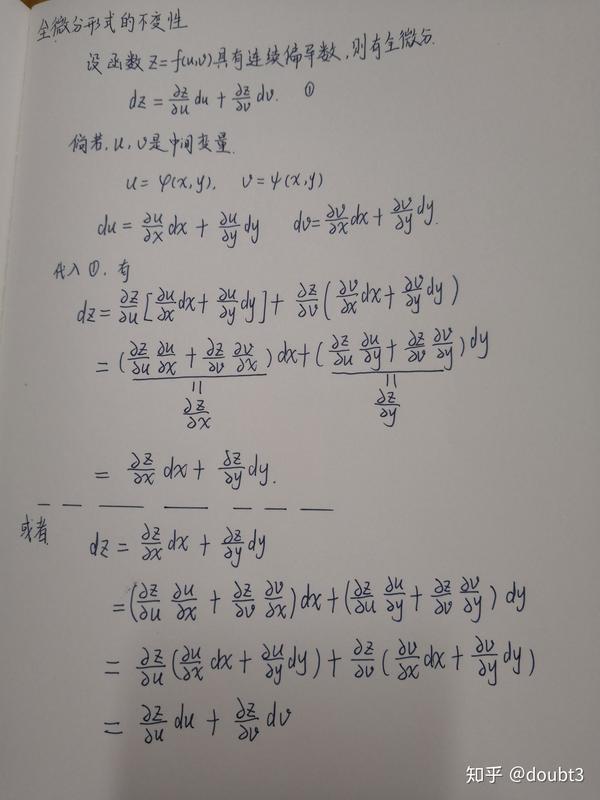 全微分形式的不变性
设函数 z=f(u,v)具有连续偏导数,则有全微分.
dz = ∂z/∂u du + ∂z/∂v dv. ①
倘若, u, v是中间变量.
u= φ(x,y), v=ψ(x,y)
du = ∂u/∂x dx + ∂u/∂y dy dv= ∂v/∂x dx + ∂v/∂y dy.
代入①, 有
dz= ∂z/∂u [∂u/∂x dx+ ∂u/∂y dy] + ∂z/∂v (∂v/∂x dx+ ∂v/∂y dy)
= (∂z/∂u ∂u/∂x + ∂z/∂v ∂v/∂x) dx+ (∂z/∂u ∂u/∂y + ∂z/∂v ∂v/∂y) dy
= =
∂z/∂x ∂z/∂y
= ∂z/∂x dx + ∂z/∂y dy.
或者 dz = ∂z/∂x dx + ∂z/∂y dy
=(∂z/∂u ∂u/∂x + ∂z/∂v ∂v/∂x) dx+(∂z/∂u ∂u/∂y + ∂z/∂v ∂v/∂y) dy
= ∂z/∂u (∂u/∂x dx + ∂u/∂y dy) + ∂z/∂v (∂v/∂x dx + ∂v/∂y dy)
= ∂z/∂u du + ∂z/∂v dv
知乎 @doubt3